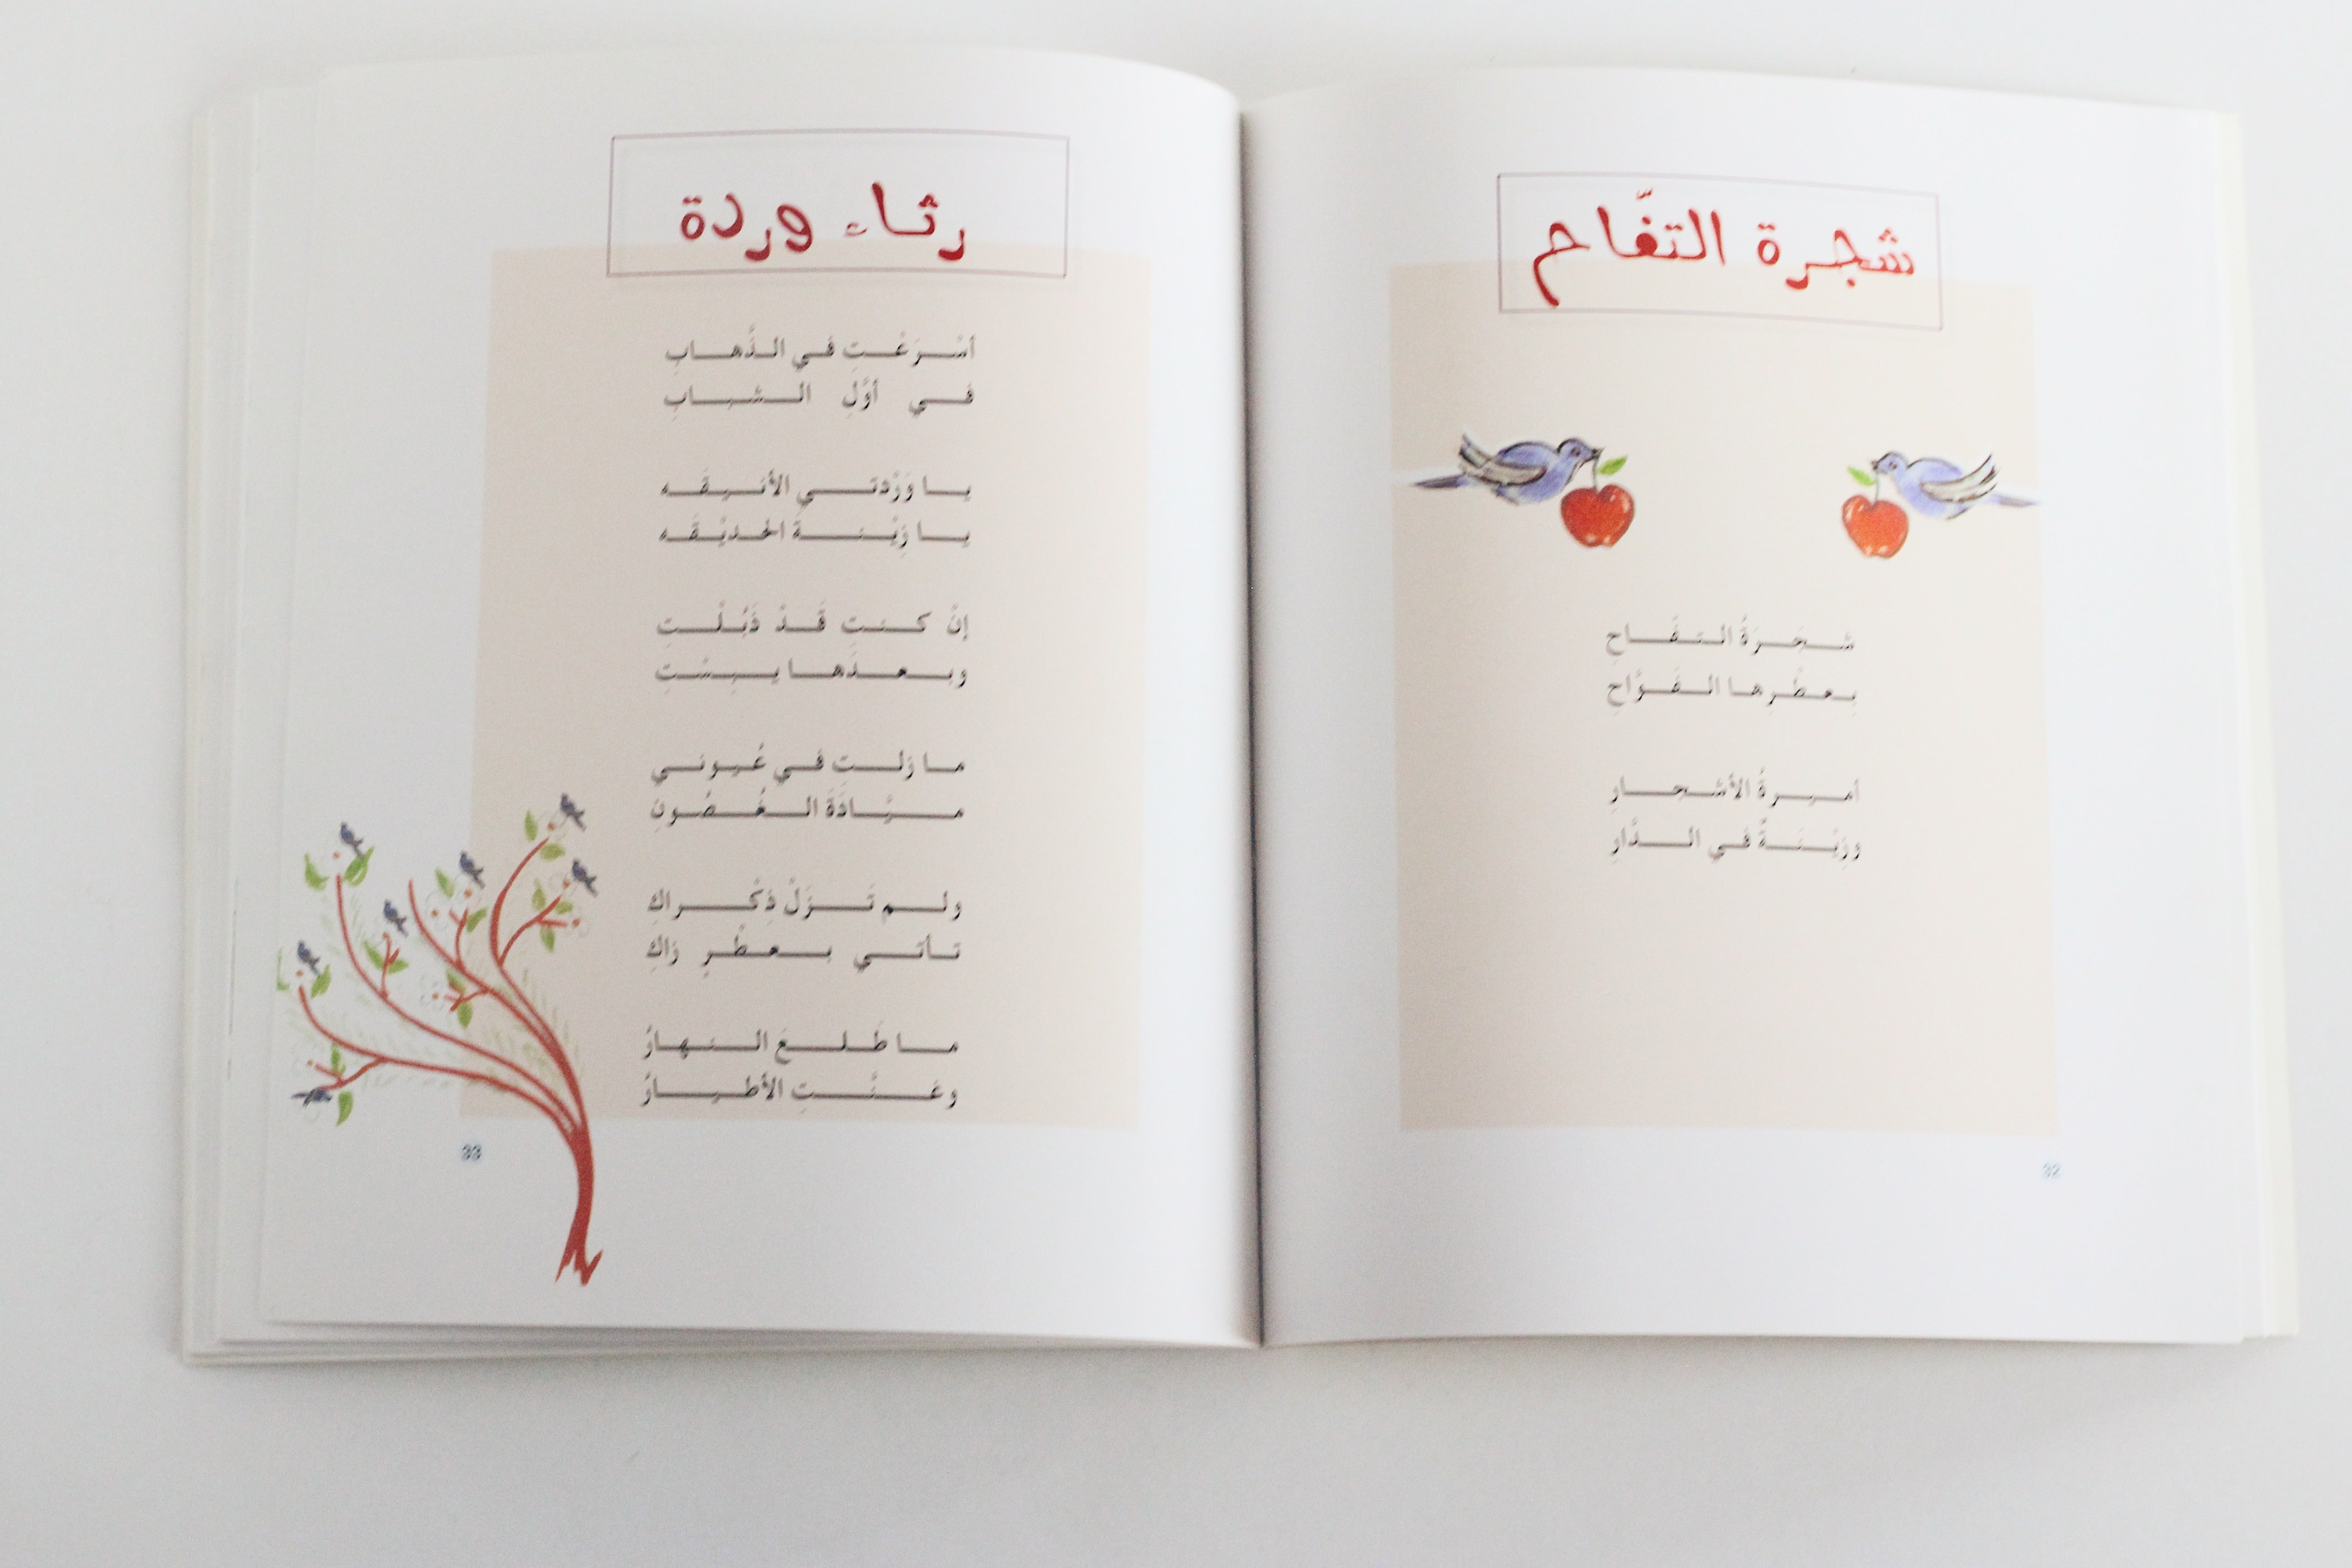 شجرة التفّاح
شَجَرَةُ التفّاحِ
بِعطْرِها الفَوَّاحِ
أميرةُ الأشجارِ
وزيْنَةٌ في الدَّارِ
32
رثاء وردة
أسْرَعْتِ في الذَّهابِ
في أوَّلِ الشبابِ
يا وَرْدتي الأنيقَه
يا زِيْنةَ الحديْقَه
إنْ كنتِ قَدْ ذَبُلْتِ
وبعدَها يبِسْتِ
ما زلتِ في عُيوني
ميَّادَةَ الغُصُونِ
ولم تَزَلْ ذِكْراكِ
تأتي بعطْرٍ زاكِ
ما طَلعَ النهارُ
وغنَّتِ الأطيارُ
33